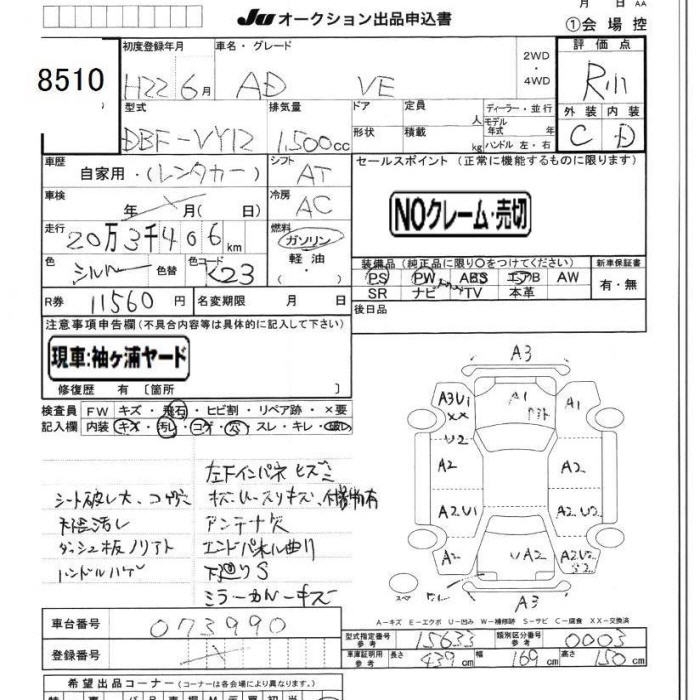 月 日 AA
JU オークション出品申込書 ①会場控
8510
初度登録年月 車名・グレード 2WD・4WD 評価点
H22 6月 AD VE
型式 排気量 ドア 定員 人 ディーラー・並行
外装 内装
DBF-VY12 1.500cc 形状 積載 kg モデル年式 年 ハンドル 左・右 C D
車歴 自家用・(レンタカー) シフト AT
セールスポイント (正常に機能するものに限ります)
車検 年 月( 日) 冷房 AC
NOクレーム・売切
走行 20万3千406km 燃料 ガソリン 軽油 ( ・ )
色 シルバー 色替 色コード K23
装備品 (純正品に限り○をつけてください) 新車保証書
PS PW ABS エアB AW 有・無
SR ナビ TV 本革
R券 11560円 名変期限 月 日 後日品
注意事項申告欄(不具合内容等は具体的に記入して下さい)
現車:袖ヶ浦ヤード
修復歴 有 〔箇所 〕
検査員記入欄 FW キズ・飛石・ヒビ割・リペア跡・×要
内装 キズ・汚レ・コゲ・穴・スレ・キレ・破レ
左Fインパネヒズミ
シート破レ大、コゲ穴
アンテナ欠
ダッシュ板ノリアト エンドパネル曲り
ハンドルハゲ 下廻りS
ミラーカバーキズ
A3
A3U1 XX A1 A1
U2
A2 A2
A2U1 A2U2
A2 UA2 A2U2 S2
A3
A-キズ E-エクボ U-凹み W-補修跡 S-サビ C-腐食 XX-交換済
車台番号 073990
登録番号
型式指定番号 参考 15633 類別区分番号 参考 0003
車庫証明用 参考 長さ 439cm 幅 169cm 高さ 150cm
希望出品コーナー(会場により異なります。)